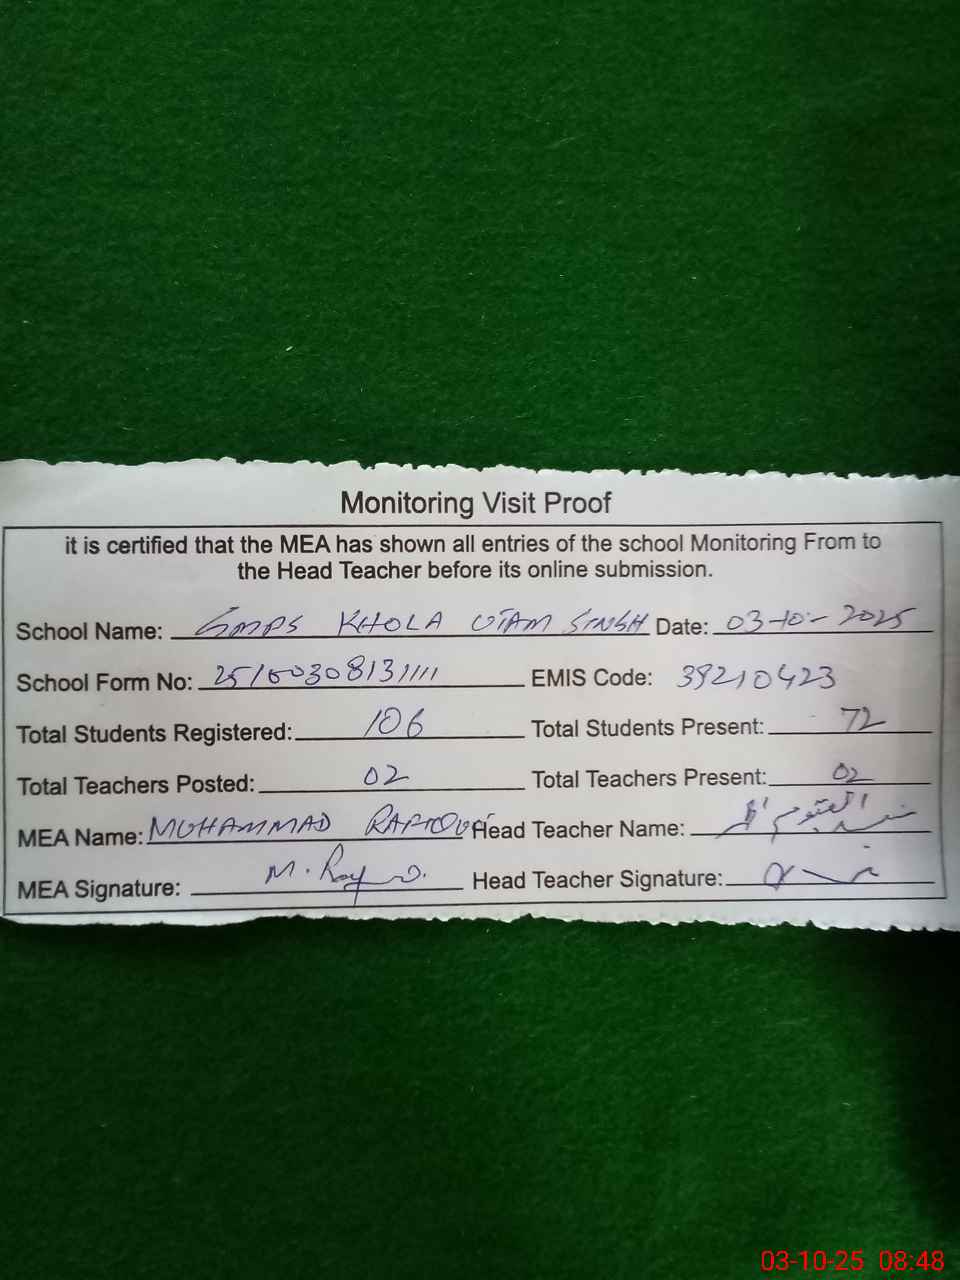 Monitoring Visit Proof
it is certified that the MEA has shown all entries of the school Monitoring From to
the Head Teacher before its online submission.
School Name: GMPS KHOLA UTAM SINGH Date: 03-10-2025
School Form No: EMIS Code: 38210423
Total Students Registered: 106 Total Students Present: 72
Total Teachers Posted: 02 Total Teachers Present: 02
MEA Name: MUHAMMAD Head Teacher Name:
MEA Signature: Head Teacher Signature:
03-10-25 08:48